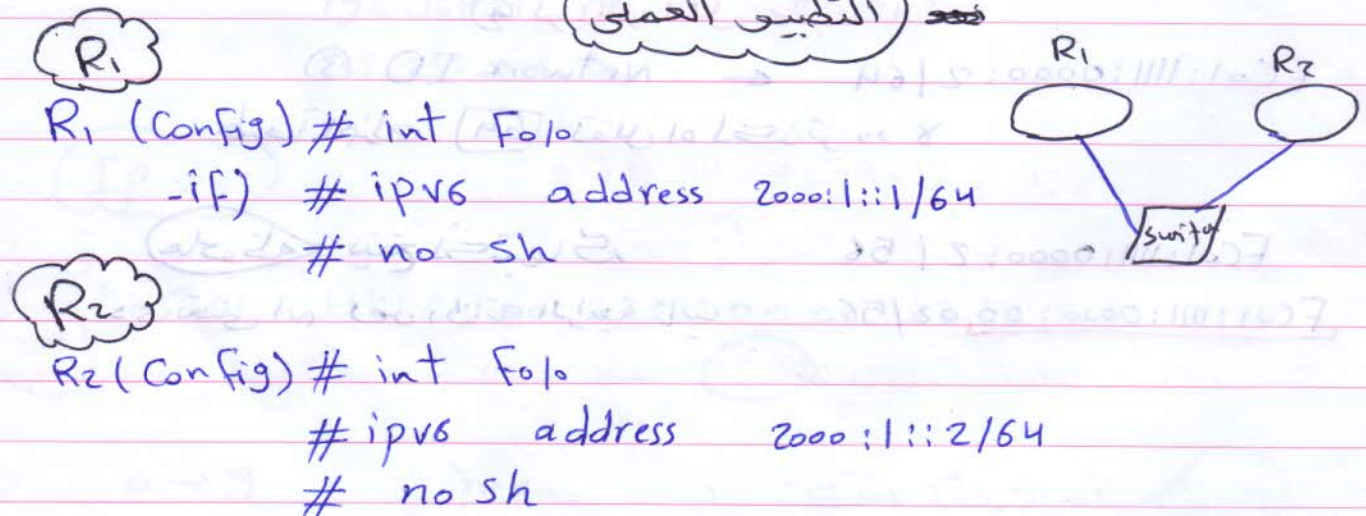 (التطبيق العملى)
R1
R1 R2
R1 (Config) # int F0/0
-if) # ipv6 address 2000:1::1/64
# no sh
R2
R2 (Config) # int F0/0
# ipv6 address 2000:1::2/64
# no sh